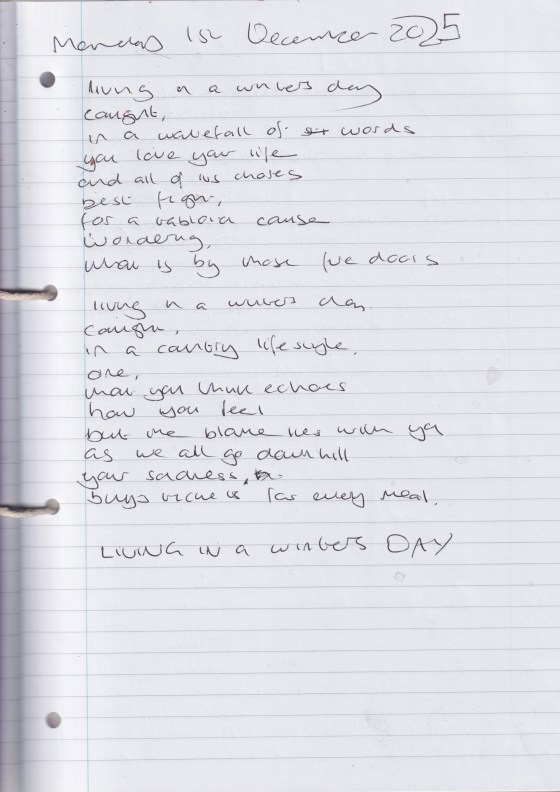 Monday 1st December 2025
living in a winters day
caught,
in a waterfall of words
you love your life
and all of its chores
best fight,
for a cause
wondering,
what is by those five doors
living in a winters day
caught,
in a country lifestyle,
one,
that you think echoes
how you feel
but the blame lies with ya
as we all go downhill
your sadness,
buys for every meal.
LIVING IN A WINTERS DAY